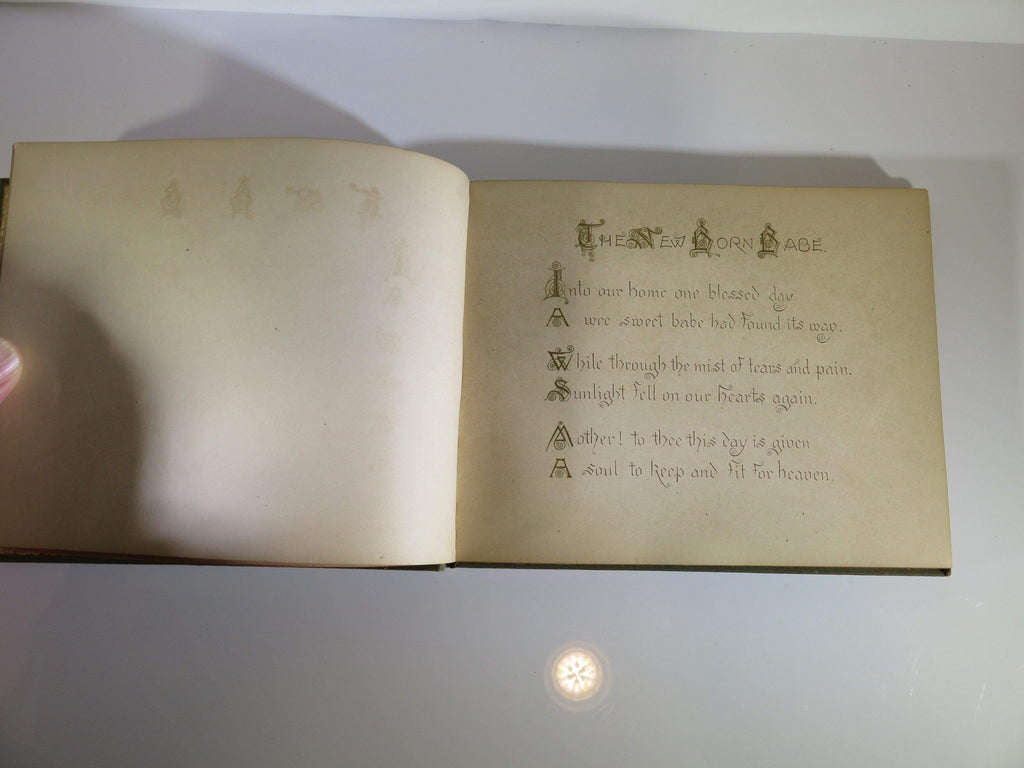 The New Born Babe.
Into our home one blessed day
A wee sweet babe had found its way.
While through the mist of tears and pain.
Sunlight fell on our hearts again.
Mother! to thee this day is given
A soul to keep and fit for heaven.